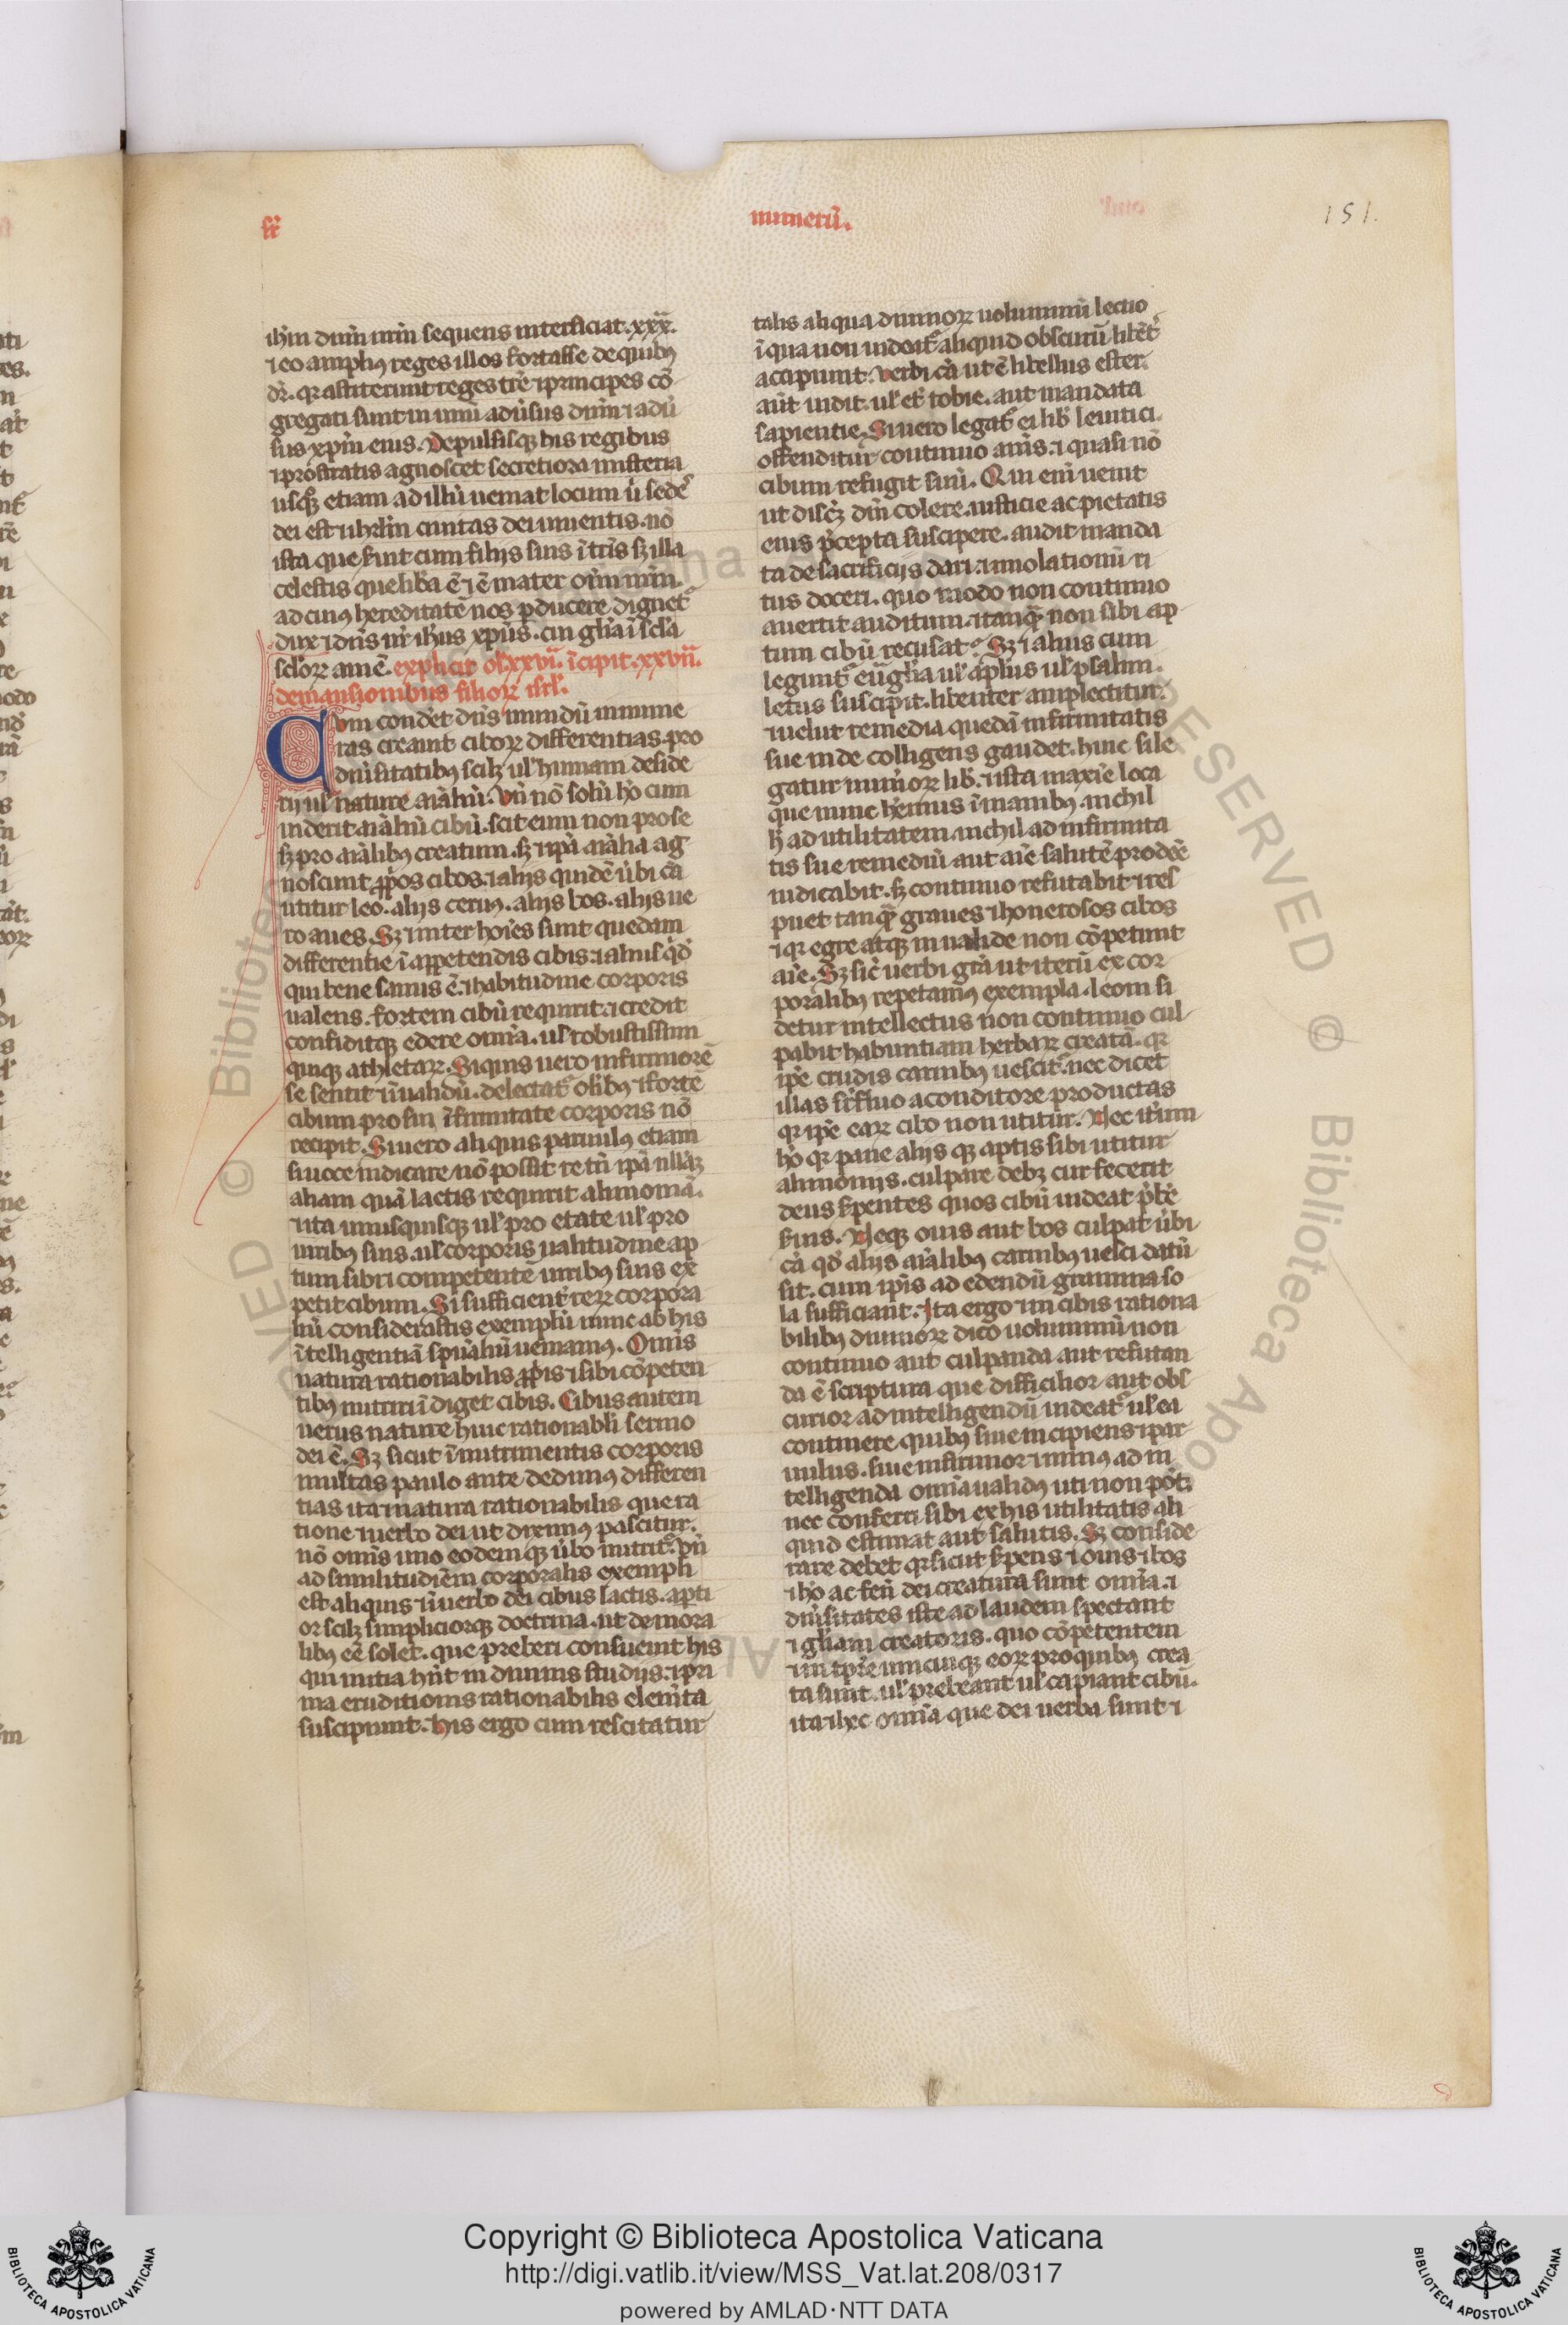 sr̄
numerū.
151.
ihm̄ dnm̄ nrm̄ sequens interficiat. xxx.
⁊ eo amplꝰ reges illos fortasse de quibꝰ
dr̄. qr astiterunt reges tr̄e ⁊ principes cō
gregati sunt in unū adūsus dnm̄ ⁊ adū
sus xpm̄ eius. Depulsisqꝫ his regibus
⁊ prostratis agnoscet secretiora misteria
usqꝫ etiam ad illū ueniat locum ū sedes
dei est ⁊ ihrlm̄ ciuitas dei uiuentis. nō
ista que seruit cum filijs suis ī tr̄is sꝫ illa
celestis que libā ē ⁊ ē mater oīm nrm̄.
ad cuiꝰ hereditatē nos pducere dignet᷑
dux ⁊ dn̄s nr̄ ihus xp̄us. cui gl̄ia ī scl̄a
scl̄oꝝ amē. explicit ol̄. xxvi. īcipit. xxvii.
de mansionibus filioꝝ isrl̄.
Cum condet dn̄s mundū innume
ras creauit ciboꝝ differentias pro
diūsitatibꝰ scilꝫ ul̓ humani deside
rij ul̓ nature aīaliū. Vn̄ nō solū hō cum
uiderit aīaliū cibū. scit eum non pro se
sꝫ pro aīalibꝰ creatum. sꝫ ⁊ ip̄a aīalia ag
noscunt pp̄os cibos. ⁊ alijs quidē ūbi cā
utitur leo. alijs ceruꝰ. alijs bos. alijs ue
ro aues. Sꝫ ⁊ inter hoīes sunt quedam
differentie ī appetendis cibis. ⁊ alius qd̓
qui bene sanus ē. ⁊ habitudine corporis
ualens. fortem cibū requirit. ⁊ credit
confiditqꝫ edere omīa. ul̓ robustissimi
quiqꝫ athletaꝝ. Siquis uero infirmiorē
se sentit ⁊ īualidū. delectat᷑ olībꝰ ⁊ fortē
cibum pro sui īfirmitate corporis nō
recipit. Si uero aliquis paruulꝰ etiam
si uoce indicare nō possit re tn̄ ip̄a nllāqꝫ
aliam quā lactis requirit alimoniā.
⁊ ita unusquisqꝫ ul̓ pro etate ul̓ pro
uiribꝰ suis. ul̓ corporis ualitudine ap
tum sibi ⁊ competentē uiribꝰ suis ex
petit cibum. Si sufficient᷑ reꝝ corpora
liū considerastis exemplū nunc ab his
ītelligentiā spūaliū ueniamꝰ. Omīs
natura rationabilis pp̄is ⁊ sibi cōpeten
tibꝰ nutriri īdiget cibis. Cibus autem
uerus nature huic rationabli sermo
dei ē. Sꝫ sicut ī nutrimentis corporis
multas paulo ante dedimꝰ differen
tias ita ⁊ natura rationabilis que ra
tione ⁊ uerbo dei ut diximꝰ pascitur.
nō omīs uno eodemqꝫ ūbo nutrit᷑. Vn̄
ad similitudiēm corporalis exempli
est aliquis ⁊ ī uerbo dei cibus lactis. apti
or scilꝫ simpliciorqꝫ doctrina. ut de mora
libꝰ eē solet. que preberi consueuit his
qui initia hn̄t in diuinis studijs. ⁊ pri
ma eruditionis rationabilis elem̄ta
suscipiunt. His ergo cum rescitatur
talis aliqua diuinoꝝ uoluminū lectio
ī qua non uideat᷑ aliquid obscurū libēt᷑
accipiunt. Verbi cā ut ē libellus ester.
aut iudit. ul̓ et̄ tobie. aut mandata
sapientie. Si uero legat᷑ ei lib̄ leuitici.
offenditur continuo anīs. ⁊ quasi nō
cibum refugit suū. Qui enī uenit
ut discꝫ dm̄ colere. iusticie ac pietatis
eius pcepta suscipere. audit manda
ta de sacrificijs dari. ⁊ inmolationū ri
tus doceri. quo modo non continuo
auertit auditum. ⁊ tanqꝫ non sibi ap
tum cibū recusat. Sꝫ ⁊ alius cum
legunt᷑ euāglia ul̓ apl̄us ul̓ psalmi.
letus suscipit. libenter amplectitur.
⁊ uelut remedia quedā infirmitatis
sue inde colligens gaudet. huic si le
gatur num̓oꝝ lib̄. ⁊ ista maxīe loca
que nunc hēmus ī manibꝰ. nichil
h̄ ad utilitatem. nichil ad infirmita
tis sue remediū aut aīe salutē prodeē
iudicabit. sꝫ continuo refutabit ⁊ res
puet tanqꝫ graues ⁊ honerosos cibos
⁊ qr egre atqꝫ inualide non cōpetunt
aīe. Sꝫ sic̄ uerbi grā ut iterū ex cor
poralibꝰ repetamꝰ exempla. leoni si
detur intellectus non continuo cul
pabit habuntiam herbaꝝ creatā. qr
ip̄e crudis carnibꝰ uescit᷑. nec dicet
illas sr̄fluo a conditore productas
qr ip̄e eaꝝ cibo non utitur. Nec it̓um
hō qr pane alijsqꝫ aptis sibi utitur
alimonijs. culpare debꝫ cur fecerit
deus s̓pentes quos cibū uideat p̓bē
s̓uis. Neqꝫ ouis aut bos culpat ūbi
cā qd̓ alijs aīalibꝰ carnibꝰ uesci datū
sit. cum ip̄is ad edendū gramina so
la sufficiant. Ita ergo ⁊ in cibis rationa
bilibꝰ diuinoꝝ dico uoluminū non
continuo aut culpanda aut refutan
da ē scriptura que difficilior aut obs
curior ad intelligendū uideat᷑ ul̓ ea
continere quibꝰ siue incipiens ⁊ par
uulus. siue infirmior ⁊ minꝰ ad in
telligenda omīa ualidꝰ uti non pōt.
nec conferri sibi ex his utilitatis ali
quid estimat aut salutis. Sꝫ conside
rare debet qr sicut s̓pens ⁊ ouis ⁊ bos
⁊ hō ac fenū dei creatura sunt omīa. ⁊
diūsitates iste ad laudem spectant
⁊ gl̄iam creatoris. quo cōpetentem
⁊ in tp̄re unicuiqꝫ eoꝝ pro quibꝰ crea
ta sunt. ul̓ prebeant ul̓ capiant cibū.
ita ⁊ hec omīa que dei uerba sunt ⁊
Copyright © Biblioteca Apostolica Vaticana
http://digi.vatlib.it/view/MSS_Vat.lat.208/0317
powered by AMLAD·NTT DATA
BIBLIOTECA APOSTOLICA VATICANA
BIBLIOTECA APOSTOLICA VATICANA